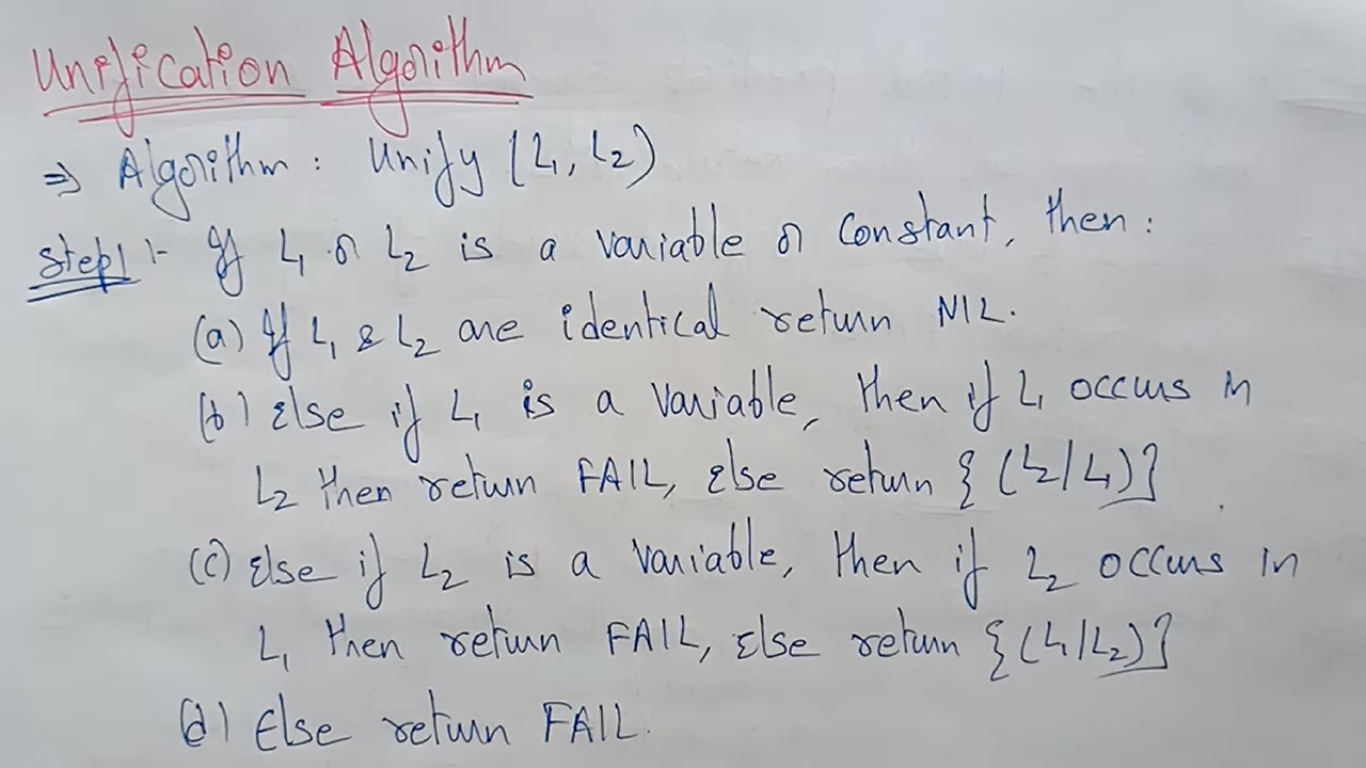 Unification Algorithm
⇒ Algorithm: Unify (L1, L2)
Step1:- If L1 or L2 is a variable or Constant, then:
(a) If L1 & L2 are identical return NIL.
(b) Else if L1 is a Variable, then if L1 occurs in
L2 then return FAIL, Else return {(L2/L1)}
(c) Else if L2 is a Variable, then if L2 occurs in
L1 then return FAIL, Else return {(L1/L2)}
(d) Else return FAIL.